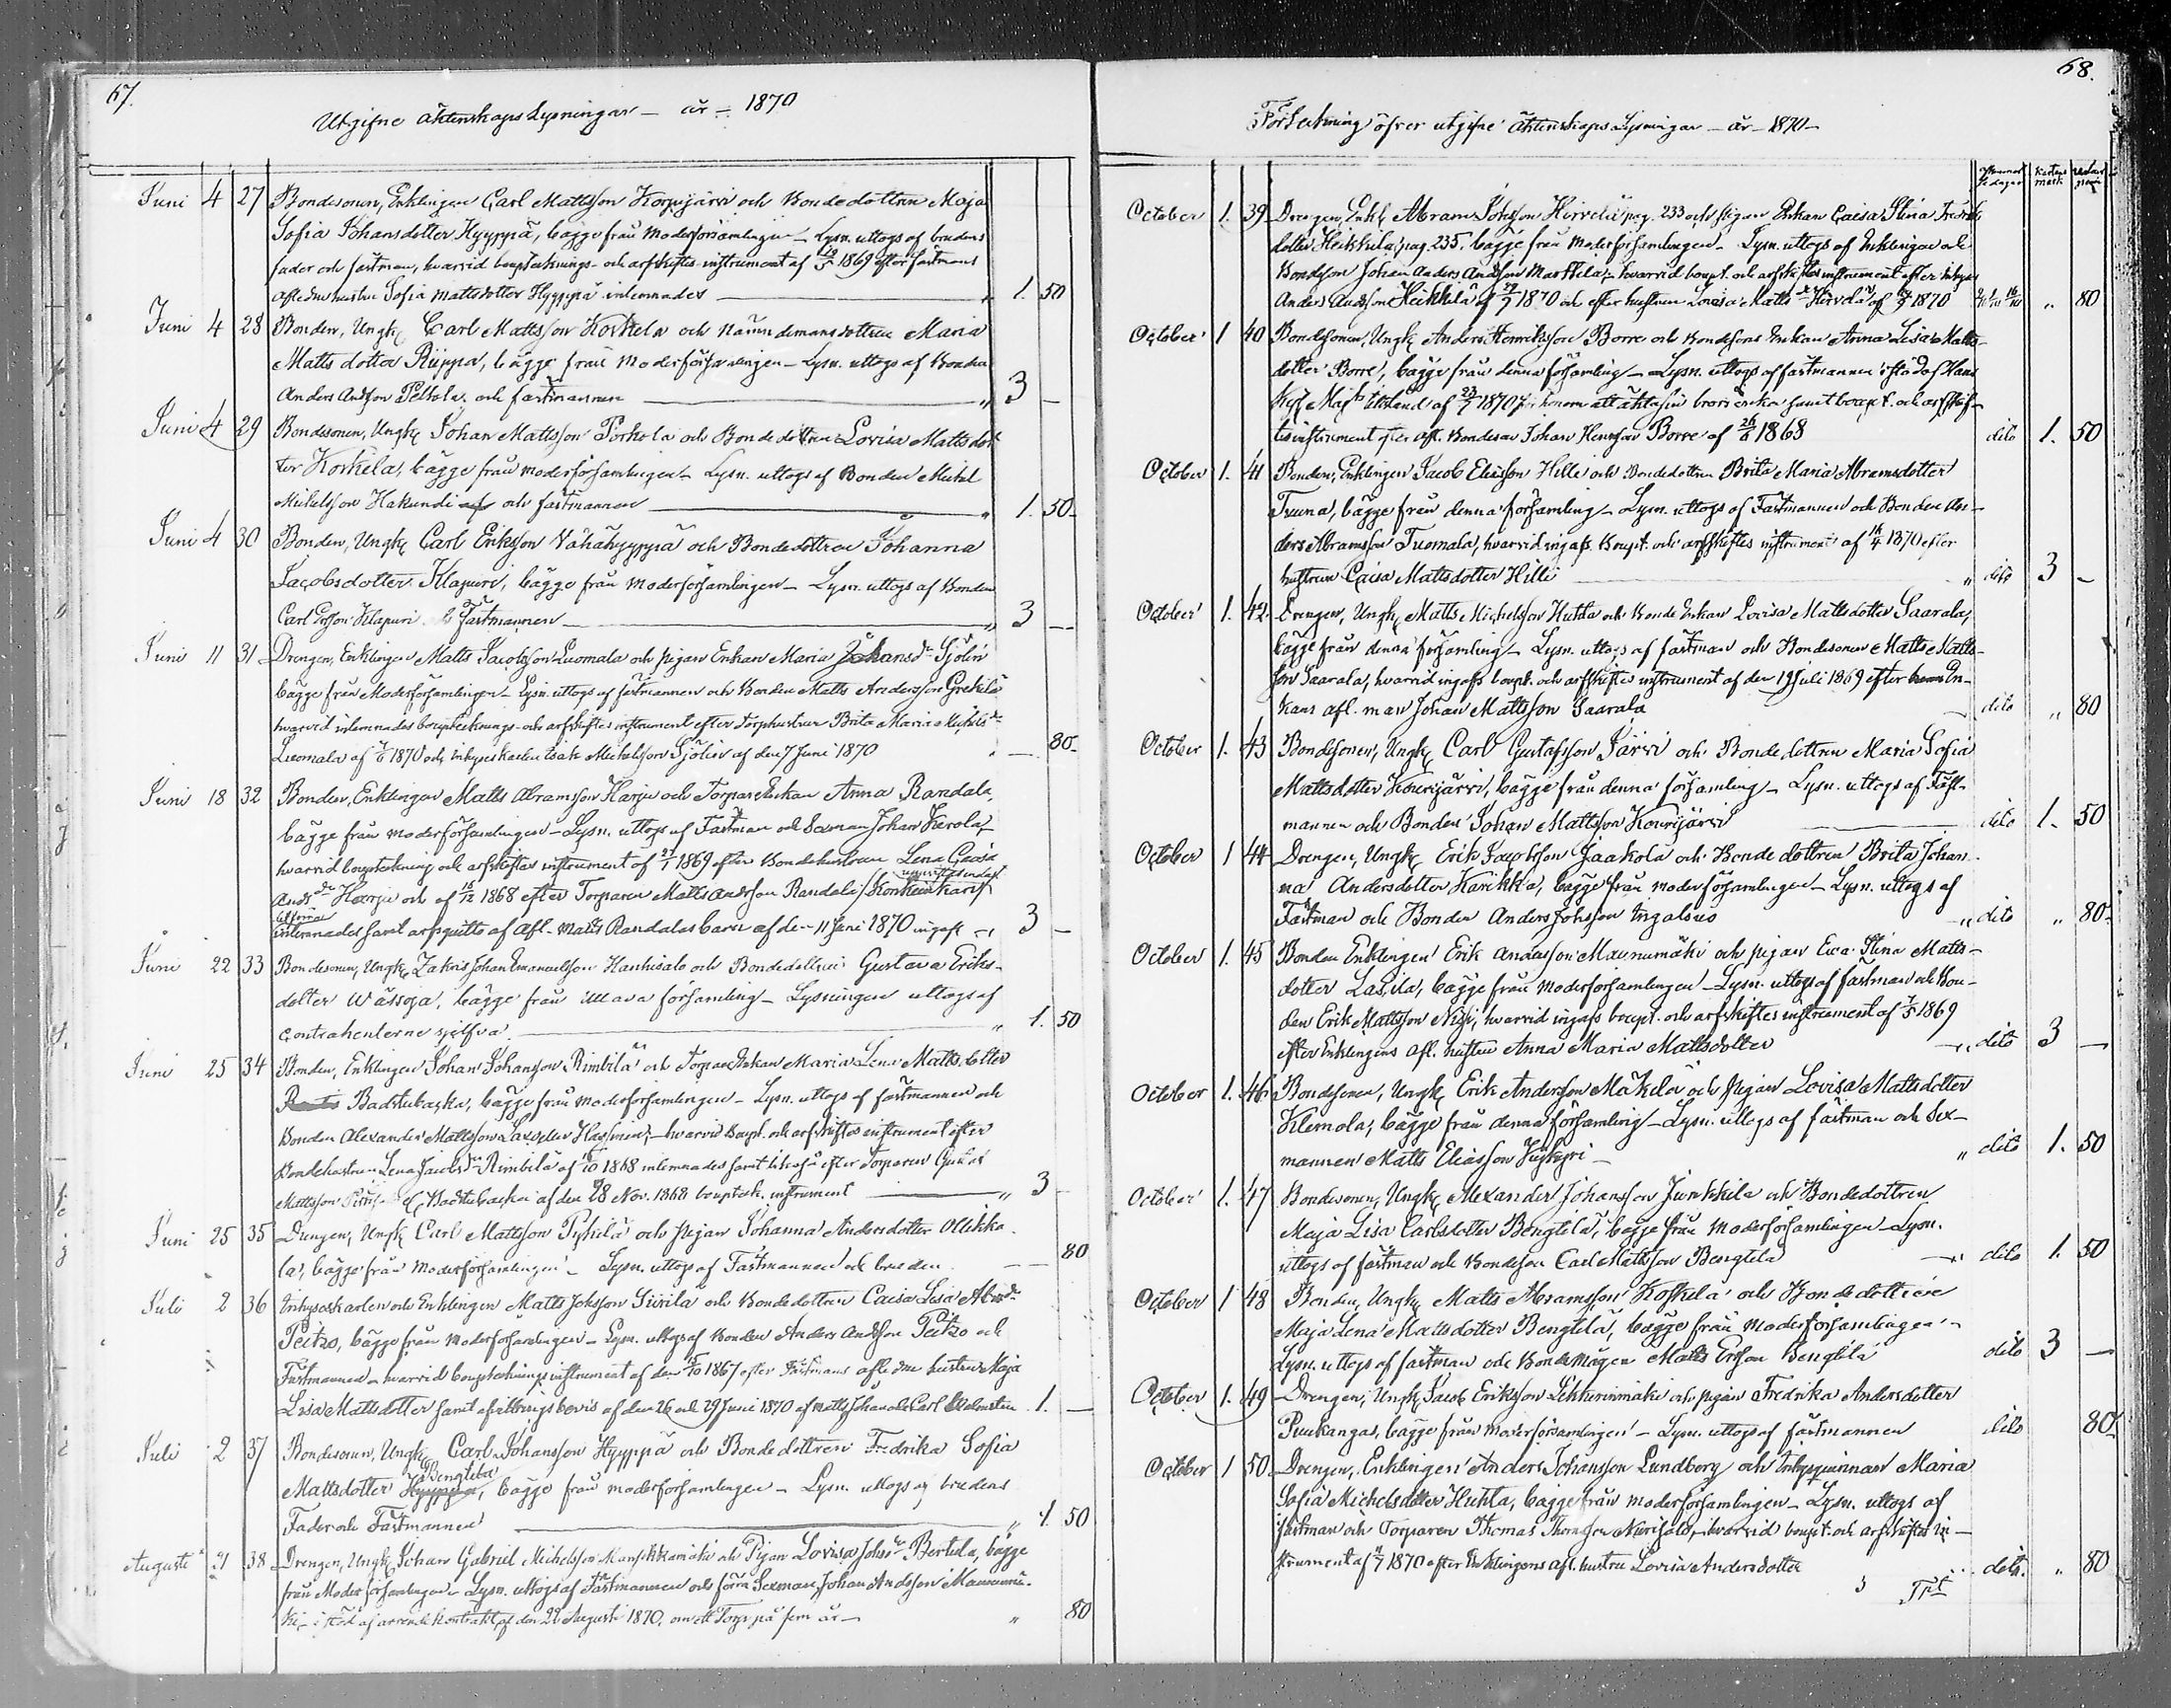 67.
Utgifne äktenskaps Lysningar – år – 1870
Juni 4 27 Bondesonen, Enklingen Carl Mattsson Korpijärvi och Bondedottren Maja
Sofia Johansdotter Hyyppä, bägge från moderförsamlingen – Lysn. uttogs af brudens
fader och fästman, hvarvid bouptecknings- och arfskiftes instrument af 1869 efter fästmans
aflidne hustru Sofia Mattsdotter Hyyppä inlemnades „ 1. 50
Juni 4 28 Bonden, Ungk. Carl Mattsson Korkela och nämndemansdottren Maria
Mattsdotter Riippa, bägge från Moderförsamlingen – Lysn. uttogs af Bonden
Anders Andsson Peltola och fästmannen „ 3 –
Juni 4 29 Bondesonen, Ungk. Johan Mattsson Porkola och Bondedottren Lovisa Mattsdot
ter Korkela, bägge från moderförsamlingen – Lysn. uttogs af Bonden Michel
Michelsson Hakundi af och fästmannen „ 1. 50
Juni 4 30 Bonden, Ungk. Carl Eriksson Vähähyyppä och Bondedottren Johanna
Jacobsdotter Klapuri, bägge från moderförsamlingen – Lysn. uttogs af Bonden
Carl Ersson Klapuri fästmannen „ 3 –
Juni 11 31 Drengen, Enklingen Matts Jacobsson Luomala och pigan Enkan Maria Johansdr Sjölin
bägge från Moderförsamlingen – Lysn. uttogs af fästmannen och Bonden Matts Andersson Grekilä
hvarvid inlemnades bouptecknings- och arfskiftes instrument efter torphustrun Brita Maria Michelsdr
Luomala af 1870 och Inhyseskarlen Isak Michelsson Sjölin af den 7 Juni 1870 80
Juni 18 32 Bonden, Enklingen Matts Abramsson Harju och Torpare Enkan Anna Randala,
bägge från moderförsamlingen – Lysn. uttogs af Fästman och Sexman Johan Kerola,
hvarvid bouppteckning och arfskiftes instrument af 1869 efter Bondehustrun Lena Caisa
Andrdr Harju och af 1868 efter Torparen Matts Andsson Randala
inlemnades samt arfsquitto af afl. Matts Randalas barn af den 11 Juni 1870 ingaft 3 –
Juni 22 33 Bondesonen, Ungk. Zakris Johan Emanuelsson Kanhisalo och Bondedottren Gustava Eriks-
dotter Wässoja, bägge från församling – Lysningen uttogs af
contrahenterne sjelfva „ 1. 50
Juni 25 34 Bonden, Enklingen Johan Johansson Rimbilä och Torpare Enkan Maria Lena Mattsdotter
Badstubacka, bägge från moderförsamlingen – Lysn. uttogs af fästmannen och
Bonden Alexander Mattsson – hvarvid boupt. och arfskiftes instrument efter
Bondehustrun Lena Jacobsdr Rimbilä af 1868 inlemnades samt likaså efter Torparen
Mattsson Badstubacka af den 28 Nov. 1868 bouptek. instrument „ 3 –
Juni 25 35 Drengen, Ungk. Carl Mattsson Pyhilä och pigan Johanna Andersdotter Ollikka
la, bägge från moderförsamlingen – Lysn. uttogs af Fästmannen och bruden 80
Juli 2 36 Inhyseskarlen och Enklingen Matts Johsson Siirilä och Bondedottren Caisa Lisa Abrdr
Peitzo, bägge från moderförsamlingen – Lysn. uttogs af Bonden Anders Andsson Peitzo och
Fästmannen – hvarvid bouptecknings instrument af den 1867 efter Fästmans aflidne hustru Maja
Lisa Mattsdotter samt afvittrings bevis af den 26 och 29 Juni 1870 af Matts Johan och Carl 1. –
Juli 2 37 Bondesonen, Ungk. Carl Johansson Hyyppä och Bondedottren Fredrika Sofia
Bengtela
Mattsdotter Hyyppä, bägge från moderförsamlingen – Lysn. uttogs af brudens
Fader och Fästmannen „ 1. 50
Augusti 31 38 Drengen, Ungk. Johan Gabriel Michelsson Mansikkamäki och Pigan Lovisa Johsdr Bertula, bägge
från Moderförsamlingen – Lysn. uttogs af Fästmannen och förra Sexman Johan Andsson Maunumä-
ki, – i stöd af arrendekontrakt af den 22 Augusti 1870, om ett Torp på fem år – „ 80
68.
Förteckning öfver utgifne Äktenskaps Lysningar – år – 1870 –
October 1. 39 Drengen, Enkl. Abram Johsson Hirvelä pag. 233 och pigan Enkan Caisa Stina Fredriks
dotter Heikkilä, pag. 235, bägge från moderförsamlingen – Lysn. uttogs af Enklingen och
Bondeson Johan Anders Andsson Marttila, – hvarvid boupt. och arfskiftes instrument efter Inhyses
Anders Andsson Heikkilä af 1870 och efter hustrun Lovisa Mattsdr Hirvelä af 1870 „ 80
October 1 40 Bondesonen, Ungk. Anders Henriksson Borre och Bondesons Enkan Anna Lisa Matts-
dotter Borre, bägge från denna församling – Lysn. uttogs af fästmannen i stöd af Hans
Kejs. Majts Utslag af 1870 för honom att äkta sin brors enka samt boupt. och arfskif-
tes instrument efter afl. Bondeson Johan Henrsson Borre af 1868 dito 1. 50
October 1. 41 Bonden, Enklingen Jacob Eliasson Hilli och Bondedottren Brita Maria Abramsdotter
Truuna, bägge från denna församling – Lysn. uttogs af Fästmannen och Bonden An-
ders Abramsson Tuomala, hvarvid ingafs boupt. och arfskiftes instrument af 1870 efter
hustrun Caisa Mattsdotter Hilli „ dito 3 –
October 1. 42. Drengen, Ungk. Matts Michelsson Huhta och Bonde Enkan Lovisa Mattsdotter Saarala,
bägge från denna församling – Lysn. uttogs af fästman och Bondesonen Matts Matts-
son Saarala, hvarvid ingafs boupt. och arfskiftes instrument af den 19 Juli 1869 efter En-
kans afl. man Johan Mattsson Saarala dito „ 80
October 1. 43 Bondesonen, Ungk. Carl Gustafsson Järvi och Bondedottren Maria Sofia
Mattsdotter Kourijärvi, bägge från denna församling – Lysn. uttogs af Fäst-
mannen och Bonden Johan Mattsson Kourijärvi dito 1. 50
October 1 44 Drengen, Ungk. Erik Jacobsson Jaakola och Bondedottren Brita Johan-
na Andersdotter Karikka, bägge från moderförsamlingen – Lysn. uttogs af
Fästman och Bonden Anders Johsson Ingalsuo „ dito „ 80
October 1. 45 Bonden Enklingen Erik Andersson Maunumäki och pigan Eva Stina Matts-
dotter Lassila, bägge från moderförsamlingen – Lysn. uttogs af fästman och Bon-
den Erik Mattsson Nisi, hvarvid ingafs boupt. och arfskiftes instrument af 1869
efter Enklingens afl. hustru Anna Maria Mattsdotter dito 3 –
October 1. 46 Bondesonen, Ungk. Erik Andersson Mäkelä och pigan Lovisa Mattsdotter
Klemola, bägge från denna församling – Lysn. uttogs af fästman och Sex-
mannen Matts Eliasson – „ dito 1. 50
October 1. 47 Bondesonen, Ungk. Alexander Johansson Junkkila och Bondedottren
Maja Lisa Carlsdotter Bengtelä, bägge från moderförsamlingen – Lysn.
uttogs af fästman och Bondeson Carl Mattsson Bengtelä dito 1. 50
October 1 48 Bonden, Ungk. Matts Abramsson Koskela och Bondedottren
Maja Lena Mattsdotter Bengtelä, bägge från moderförsamlingen –
Lysn. uttogs af fästman och Bondemågen Matts Ersson Bengtelä dito 3 –
October 1. 49 Drengen, Ungk. Jacob Eriksson Lehtuvunmäki och pigan Fredrika Andersdotter
Puukangas, bägge från moderförsamlingen – Lysn. uttogs af fästmannen dito 80
October 1 50 Drengen, Enklingen Anders Johansson Lundberg och Inhysqvinnan Maria
Sofia Michelsdotter Huhta, bägge från moderförsamlingen – Lysn. uttogs af
fästman och Torparen Thomas Thomsson, hvarvid boupt. och arfskiftes in-
strument af 1870 efter Enklingens afl. hustru Lovisa Andersdotter dito. „ 80
Tpt